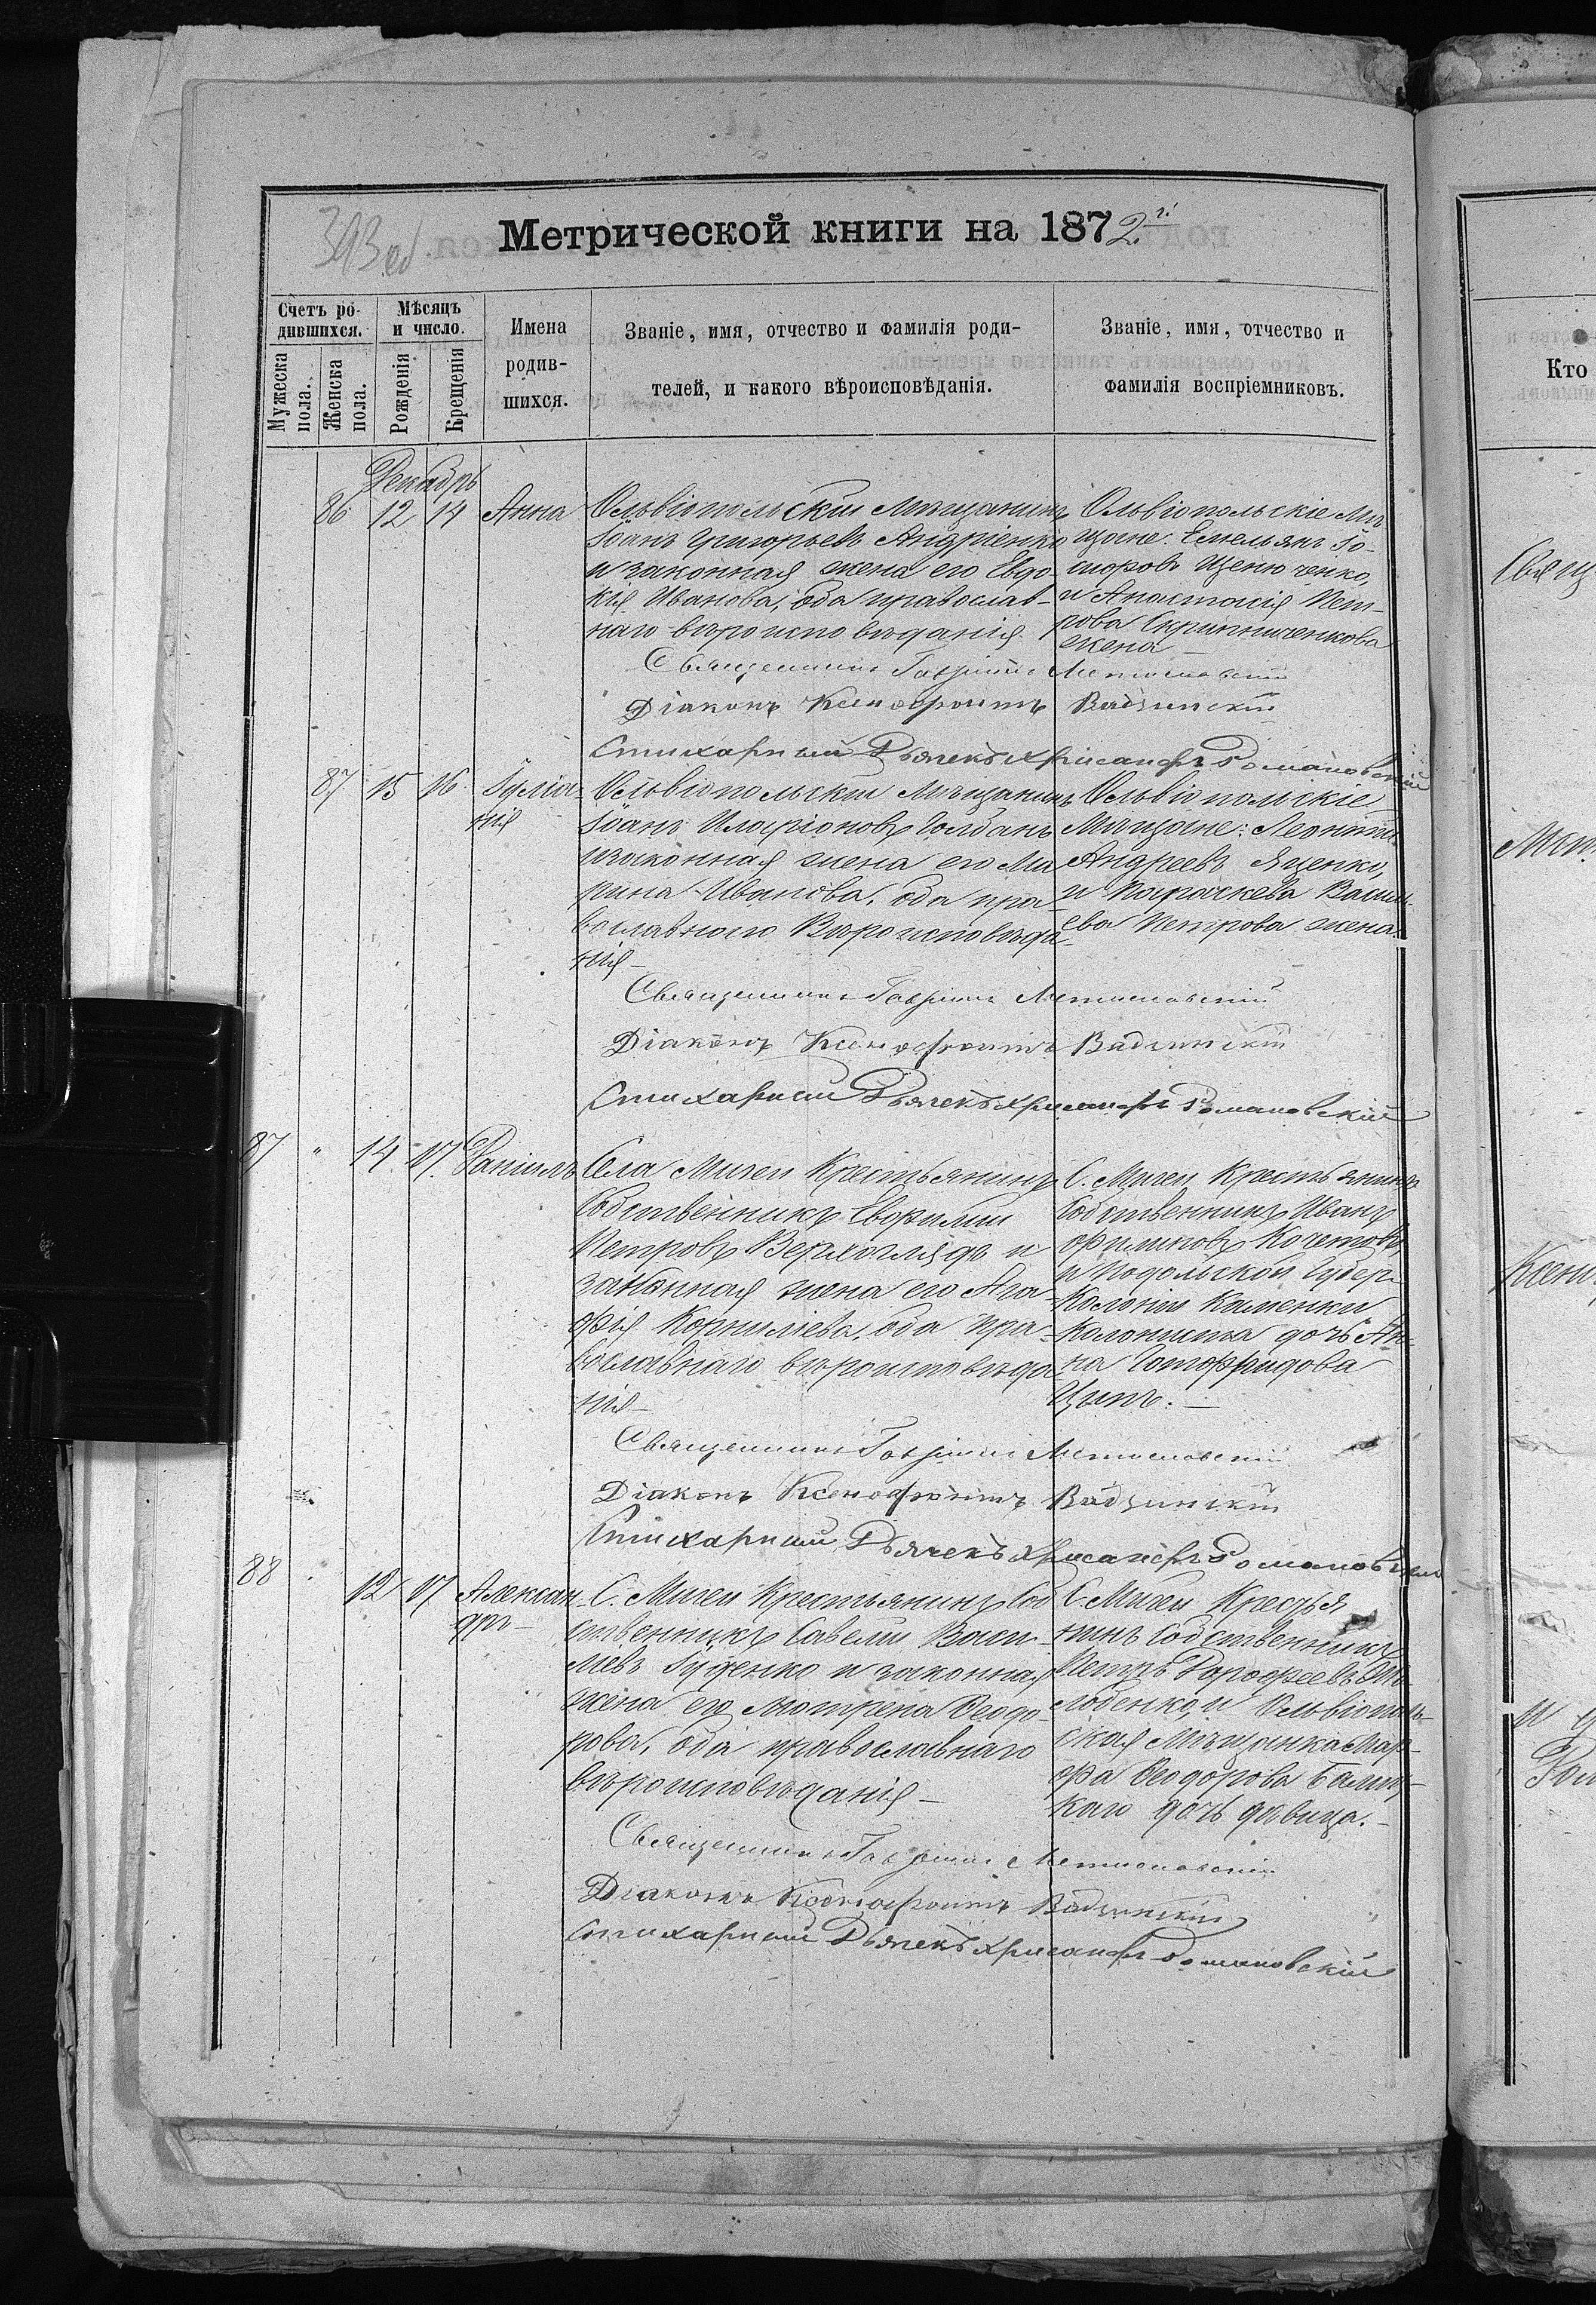 393 об.
Метрической книги на 1872 г.
Счетъ ро-
дившихся.
Мужеска
пола.
Женска
пола.
Мѣсяцъ
и число.
Рожденія
Крещенія
Имена
родив-
шихся.
Званіе, имя, отчество и фамилія роди-
телей, и какого вѣроисповѣданія.
Званіе, имя, отчество и
фамилія воспріемниковъ.
Декабрь
86 12 14 Анна
Ольвіопольскій Мѣщанинъ
Іоанъ Григорьевъ Андріенко
и законная жена его Евдо-
кія Иванова, оба православ-
наго вѣроисповѣданія
Ольвіопольскіе Мѣ-
щане: Емельянъ
и Анастасія Пет-
рова Скрипниченкова
жена
Священникъ Гавріилъ
Діаконъ Ксенофонтъ Вадзинскій
Стихарный Дьячекъ Хрисанфъ Романовскій
87 15 16 Іуліа-
нія
Ольвіопольскій Мѣщанинъ
Іоанъ Иларіоновъ Голбанъ
и законная жена его Ма-
рина Иванова, оба пра-
вославнаго Вѣроисповѣда-
нія
Ольвіопольскіе
Мѣщане: Леонтій
Андреевъ Яценко,
и Параскева Васил-
ева Петрова жена
Священникъ Гавріилъ
Діаконъ Ксенофонтъ Вадзинскій
Стихарный Дьячекъ Хрисанфъ Романовскій
87 " 14 17. Даніилъ
Села Мигеи Крестьянинъ
Собственникъ Евфимій
Петровъ Верхоглядъ и
законная жена его Ага-
фія Корниліева, оба пра-
вославнаго вѣроисповѣда-
нія
С. Мигеи Крестьянинъ
Собственникъ Иванъ
Кочетовъ
и Подольской Губер.
Колоніи Каменки
Колониста дочь Ан-
на Готфридова
Цыпъ.
Священникъ Гавріилъ
Діаконъ Ксенофонтъ Вадзинскій
Стихарный Дьячекъ Хрисанфъ Романовскій
88 12 17 Александ-
дръ
С. Мигеи Крестьянинъ Соб-
ственникъ Савелій Васи-
льевъ Гуценко и законная
жена его Мотрена Ѳеодо-
рова, оба православнаго
вѣроисповѣданія
С. Мигеи Крестья-
нинъ Собственникъ
Петръ Дорофеевъ
и Ольвіополь-
ская Мѣщанка Мар-
фа Ѳеодорова
каго дочь дѣвица.
Священникъ Гавріилъ
Діаконъ Ксенофонтъ Вадзинскій
Стихарный Дьячекъ Хрисанфъ Романовскій
Кто